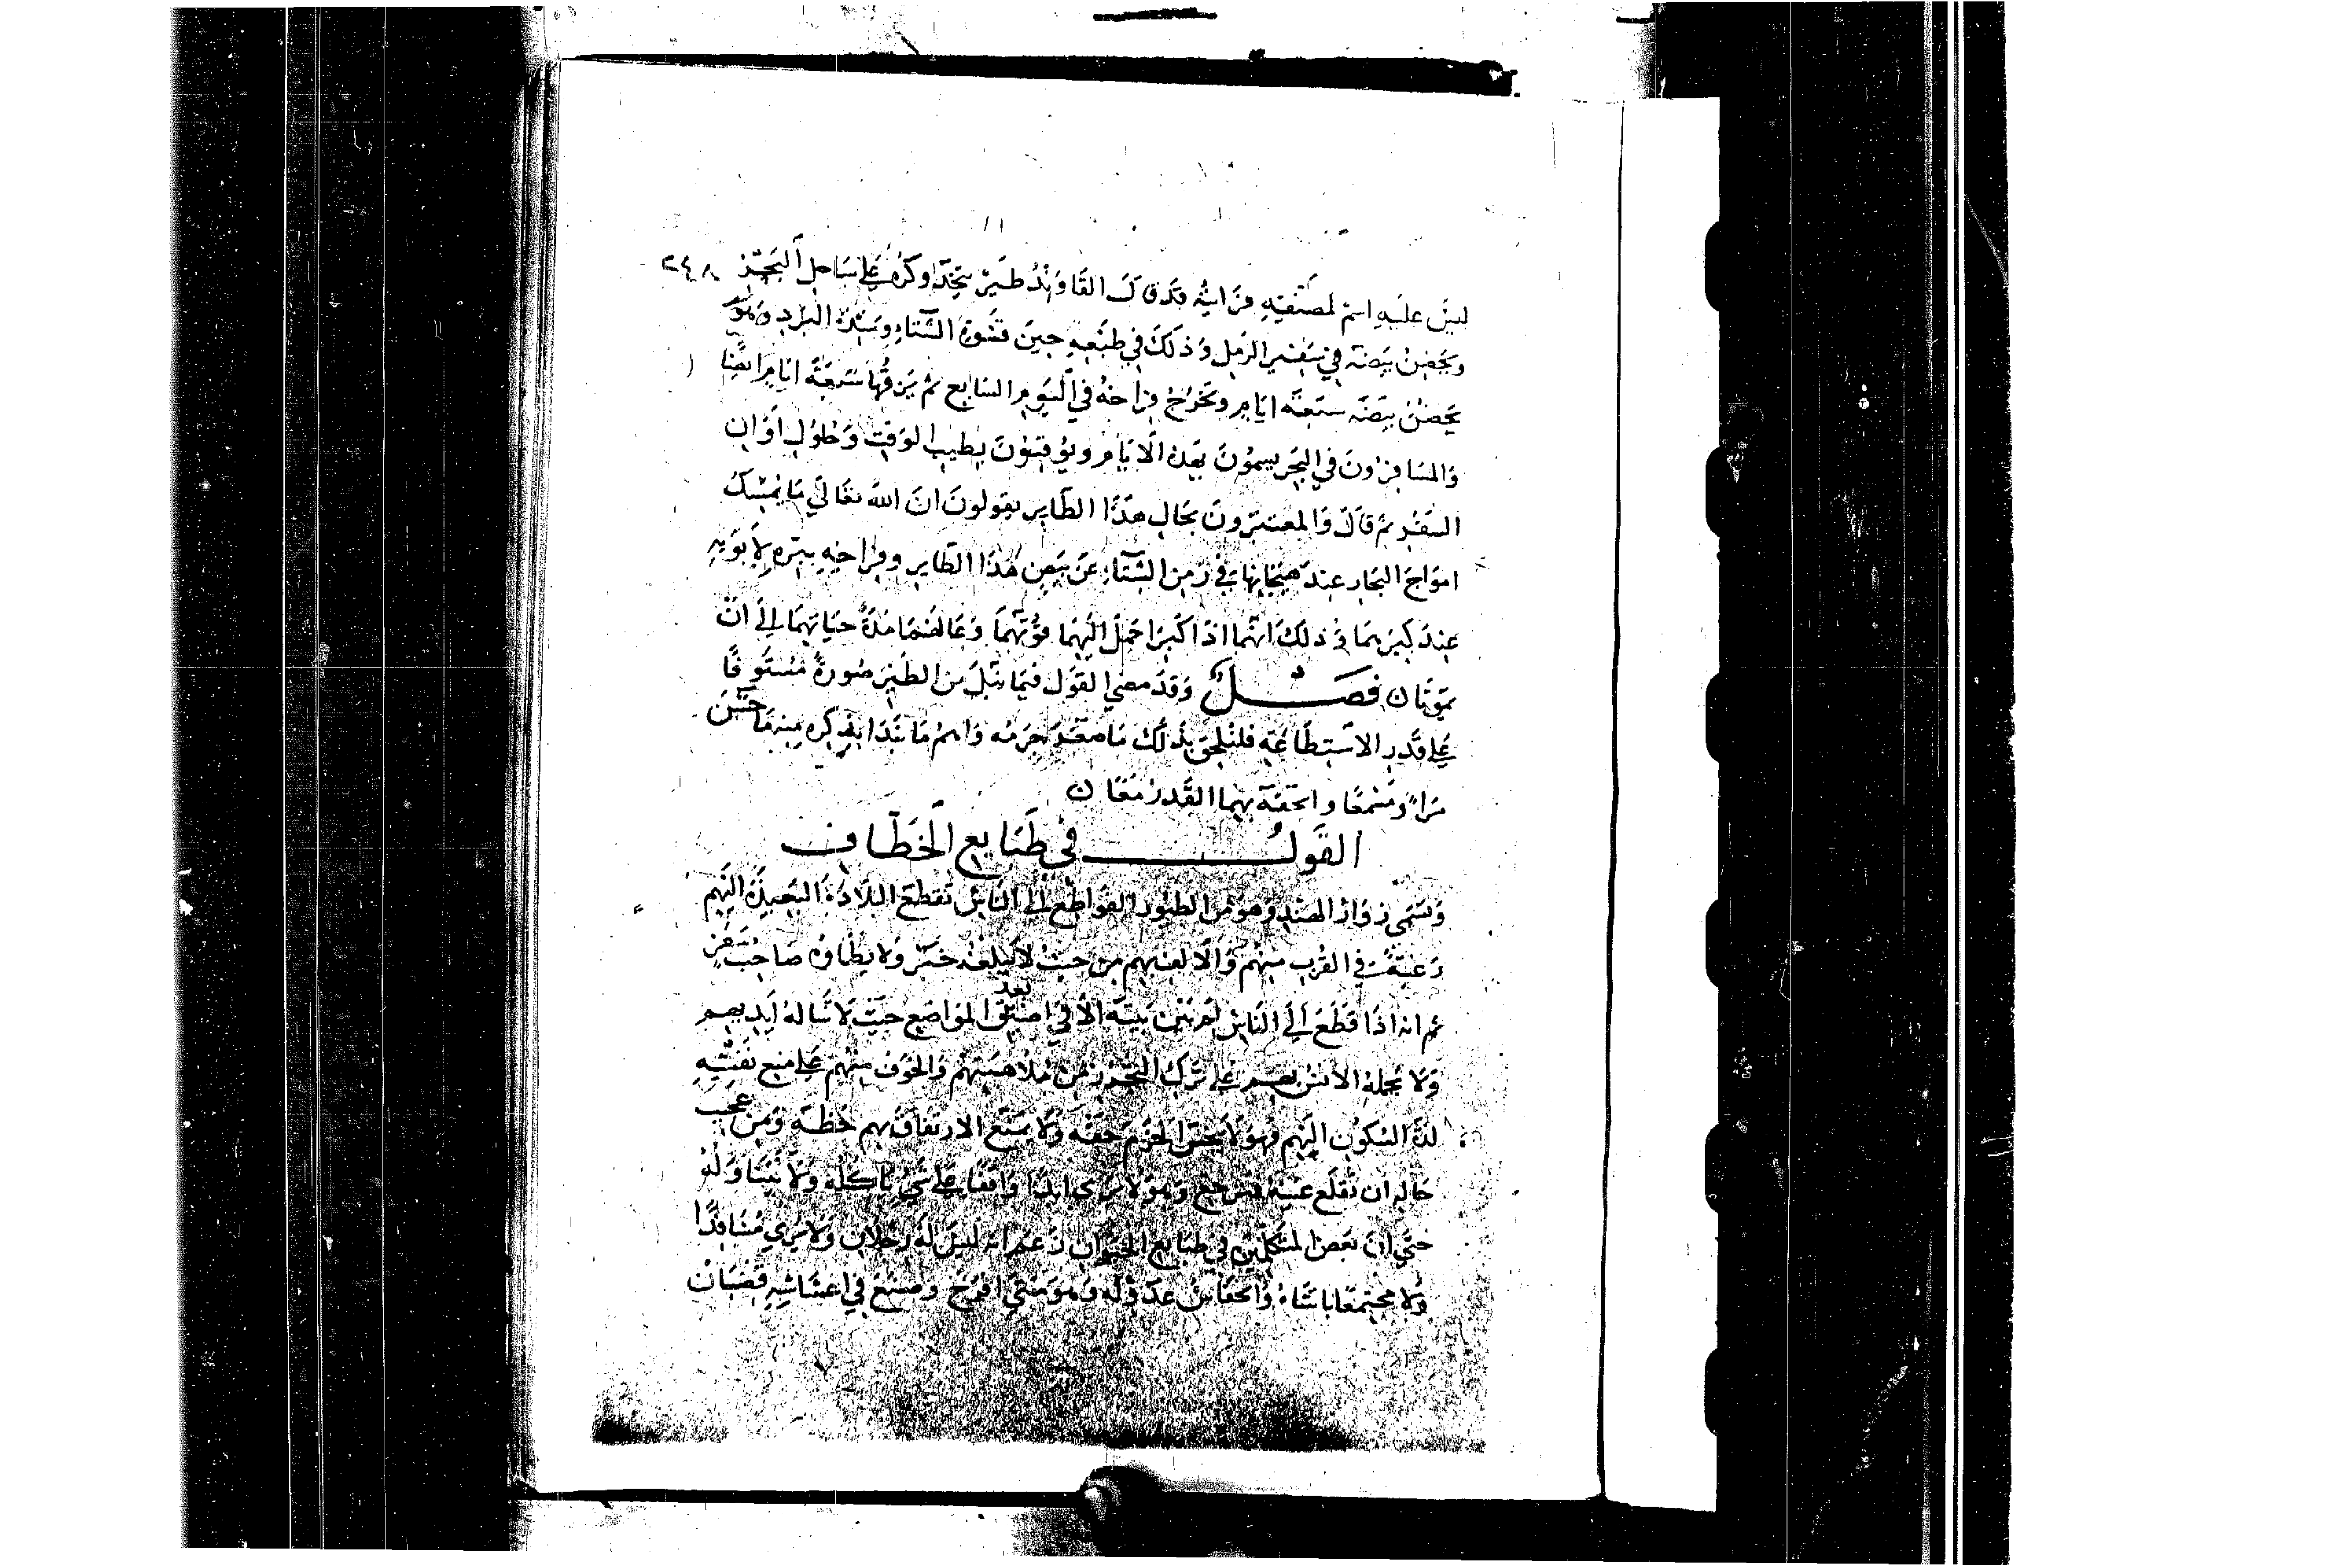 ليس عليه اسم لمصنفيه فرأيته قد قال القاوند طير يتخذ وكره على ساحل البحر ٢٤٨
ويحضن بيضه في الرمل وذلك في طبعه حين قشوة الشتاء وشدة البرد وهو
يحضن بيضه سبعة ايام وتخرج فراخه في اليوم السابع ثم يزقها سبعة ايام ايضا
والمسافرون في البحر يسمون بهذه الايام ويوقنون بطيب الوقت وطول اوان
السفر ثم قال والمعتبرون بحال هذا الطاير يقولون ان الله تعالى ما يمسك
امواج البحار عند هيجانها في زمن الشتاء عن بيض هذا الطاير وفراخه ببره لابويه
عند كبرهما وذلك انهما اذا كبرا حمل اليهما قوتهما وعالهما مدة حياتهما الى ان
يموتان فصل وقد مضى القول فيما نبل من الطير صورة مستوفا
على قدر الاستطاعة فلنلحق بذلك ما صغر جرمه واهم ما نبدا بذكره منه ما حسن
مرا ومسمعا والحقنه بهما القدر معا ن
القول في طبايع الخطاف
ويسمى زوار الهند وهو من الطيور القواطع الى الناس تقطع البلاد البعيدة اليهم
رغبة في القرب منهم والالف بهم من حيث لا يبلغه خبر ولا يطاؤه صاحب سفر
ثم انه اذا قطع الى الناس لم يبن بيته الا في ابعد المواضع حيث لا تناله ايديهم
ولا يحمله الانس بهم على ترك التحرز من والخوف منهم على منع نفسه
لذة السكون اليهم فهو لا يبخس الحزم حقه ولا يمنع الارتفاق بهم حظه ومن عجب
حاله ان تقلع عينه فترجع وهو لا يرى ابدا واقفا على شي ياكله ولا يتناوله
حتى ان بعض المتكلمين في طبايع الحيوان زعم انه ليس له رجلان ولا يرى مسافدا
ولا مجتمعا بانثاه والخفاش عدو له وهو متى افرخ وضع في اعشاشه قضبان